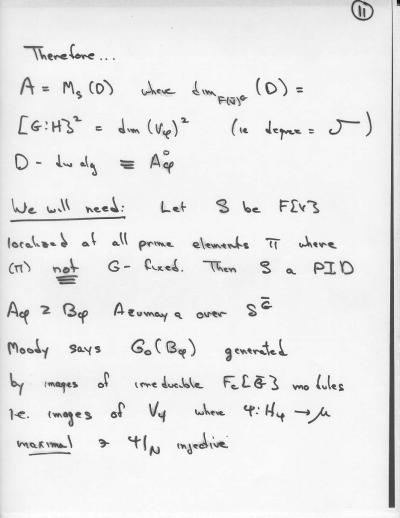 11
Therefore...
A = M_s(D) where dim_{F(V)^G} (D) =
[G:H]^2 = dim (V_φ)^2 (ie degree = √ )
D - div alg ≡ A_φ^0
We will need: Let S be F[V]
localized at all prime elements π where
(π) not G-fixed. Then S a PID
A_φ ⊇ B_φ Azumaya over S^G̅
Moody says G_0(B_φ) generated
by images of irreducible F_c[G̅] modules
i.e. images of V_ψ where ψ: H_ψ → μ
maximal ∋ ψ|_N injective